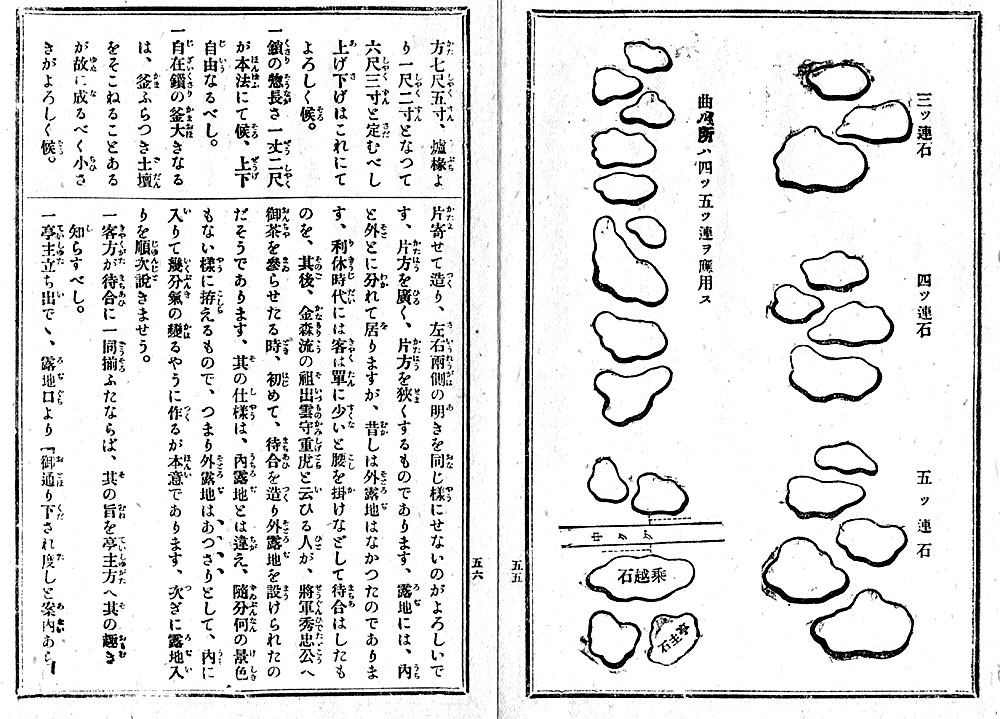 三ツ連石
四ツ連石
五ツ連石
曲リ所ハ四ツ五ツ連ヲ應用ス
乘越石
亭主石
五五
方七尺五寸、爐椽よ
り一尺二寸となつて
六尺三寸と定むべし
上げ下げはこれにて
よろしく候。
一鎖の惣長さ一丈二尺
が本法にて候、上下
自由なるべし。
一自在鎖の釜大きなる
は、釜ふらつき土壇
をそこねることある
が故に成るべく小さ
きがよろしく候。
片寄せて造り、左右兩側の明きを同じ樣にせないのがよろしいで
す、片方を廣く、片方を狹くするものであります、露地には、內
と外とに分れて居りますが、昔しは外露地はなかつたのでありま
す、利休時代には客は單に少いと腰を掛けなどして待合はしたも
のを、其後、金森流の祖出雲守重虎と云ひる人が、將軍秀忠公へ
御茶を參らせたる時、初めて、待合を造り外露地を設けられたの
だそうであります、其の仕樣は、內露地とは違え、隨分何の景色
もない樣に拵えるもので、つまり外露地はあつさりとして、內に
入りて幾分氣の變るやうに作るが本意であります、次ぎに露地入
りを順次說きませう。
一客方が待合に一同揃ふたならば、其の旨を亭主方へ其の趣き
知らすべし。
一亭主立ち出で、露地口より『御通り下され度しと案內あら
五六